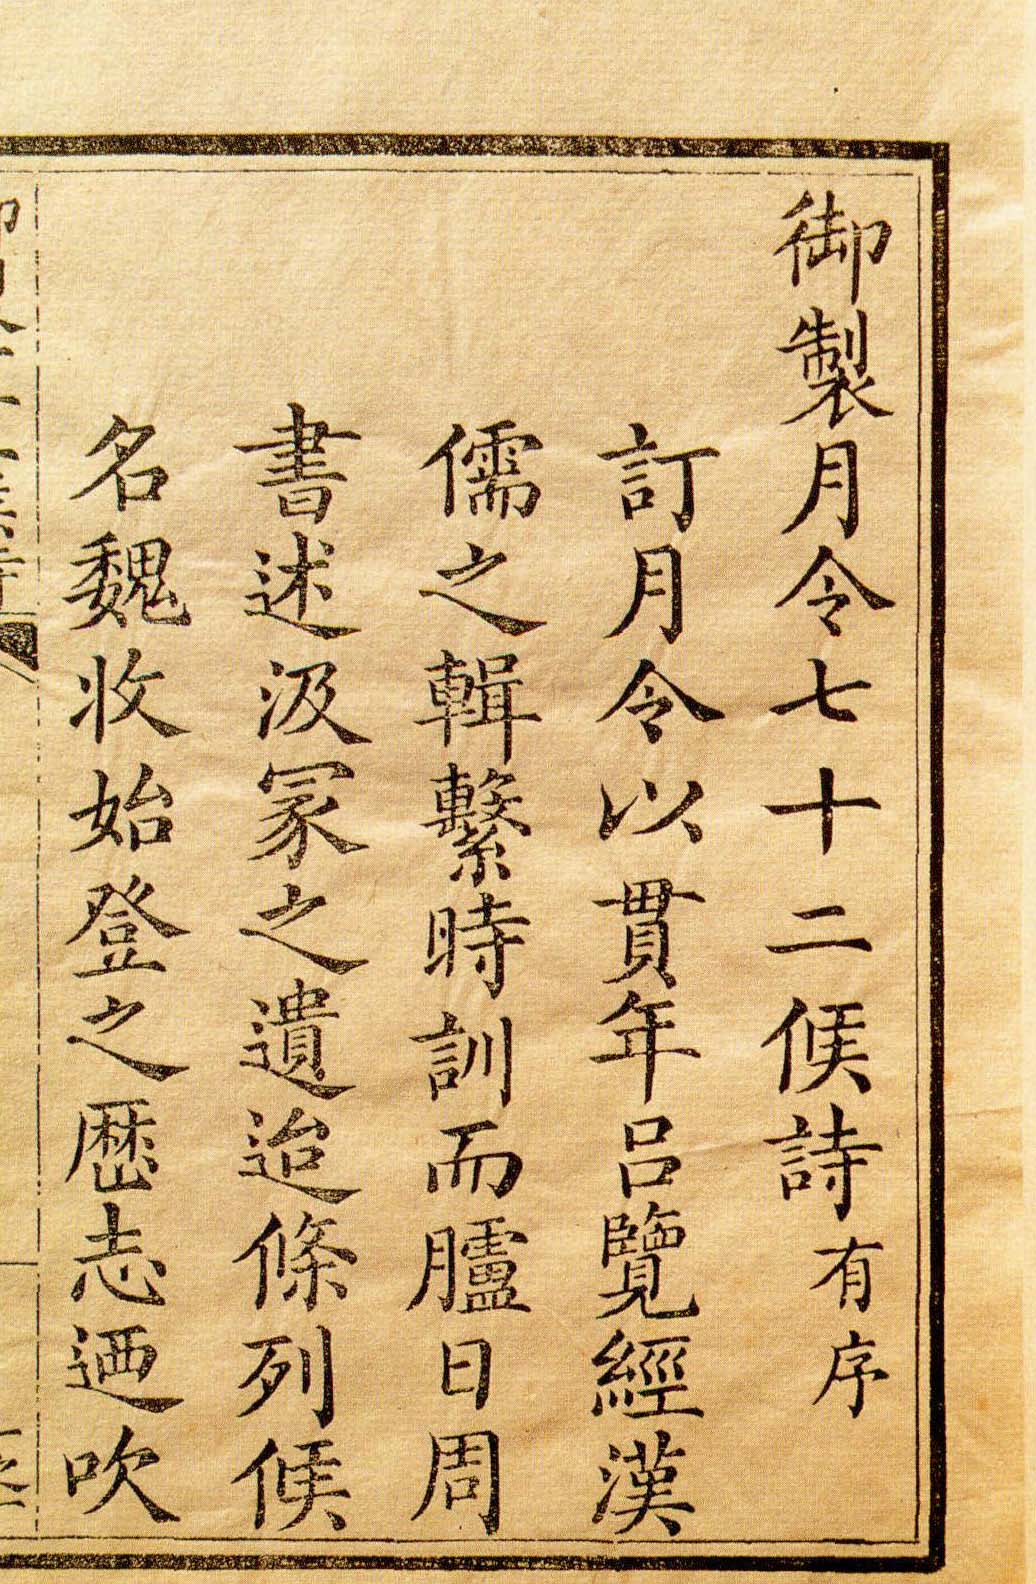 御製月令七十二候詩有序
訂月令以貫年呂覽經漢
儒之輯繫時訓而臚日周
書述汲冡之遺迨條列候
名魏收始登之歴志迺吹